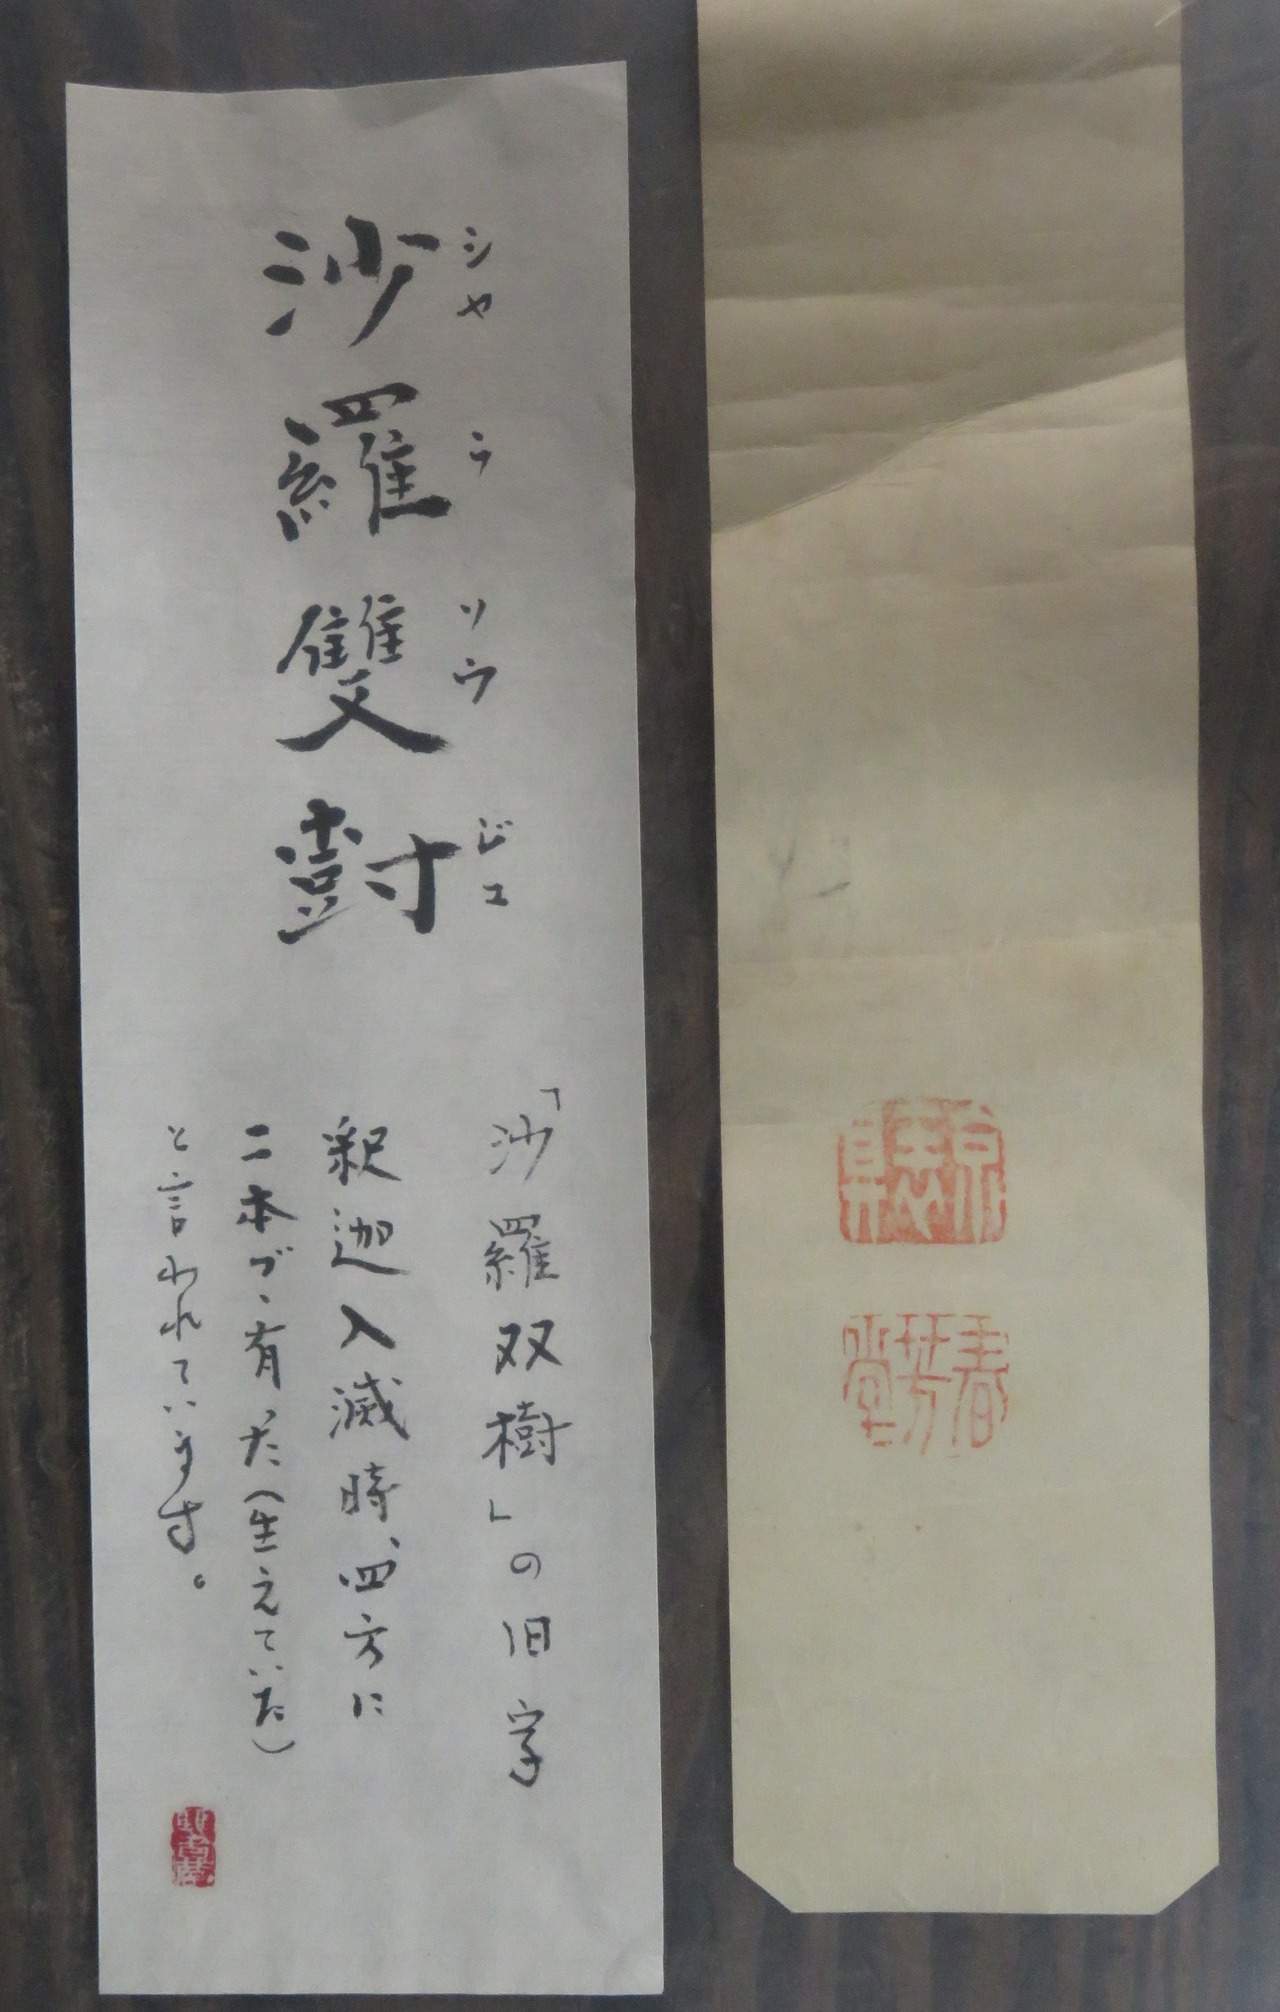 沙羅雙尌
シャラソウジュ
「沙羅双樹」の旧字
釈迦入滅時、四方に
二本づゝ有った(生えていた)
と言われています。
春芳堂